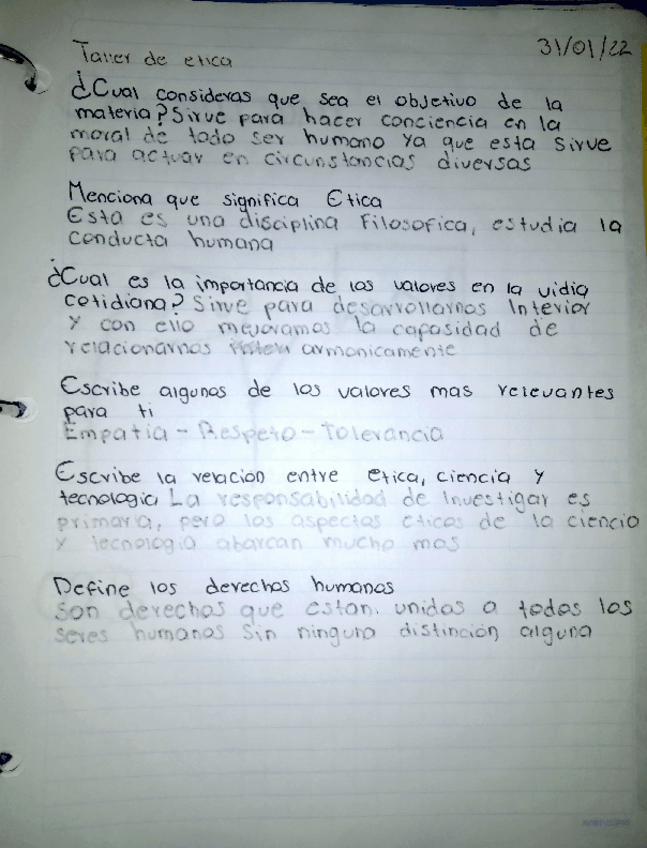 Taller de etica
31/01/22
¿Cual consideras que sea el objetivo de la
materia? Sirve para hacer conciencia en la
moral de todo ser humano ya que esta sirve
para actuar en circunstancias diversas
Menciona que significa Etica
Esta es una disciplina Filosofica, estudia la
conducta humana
¿Cual es la importancia de los valores en la vidia
cotidiana? Sirve para desarrollarnos Interior
y con ello mejoramos la capasidad de
relacionarnos armonicamente
Escribe algunos de los valores mas relevantes
para ti
Empatia - Respeto - Tolerancia
Escribe la relacion entre etica, ciencia y
tecnologia La responsabilidad de Investigar es
primaria, pero los aspectos eticos de la ciencia
y tecnologia abarcan mucho mas
Define los derechos humanos
Son derechos que estan. unidos a todos los
seres humanos Sin ninguna distinción alguna